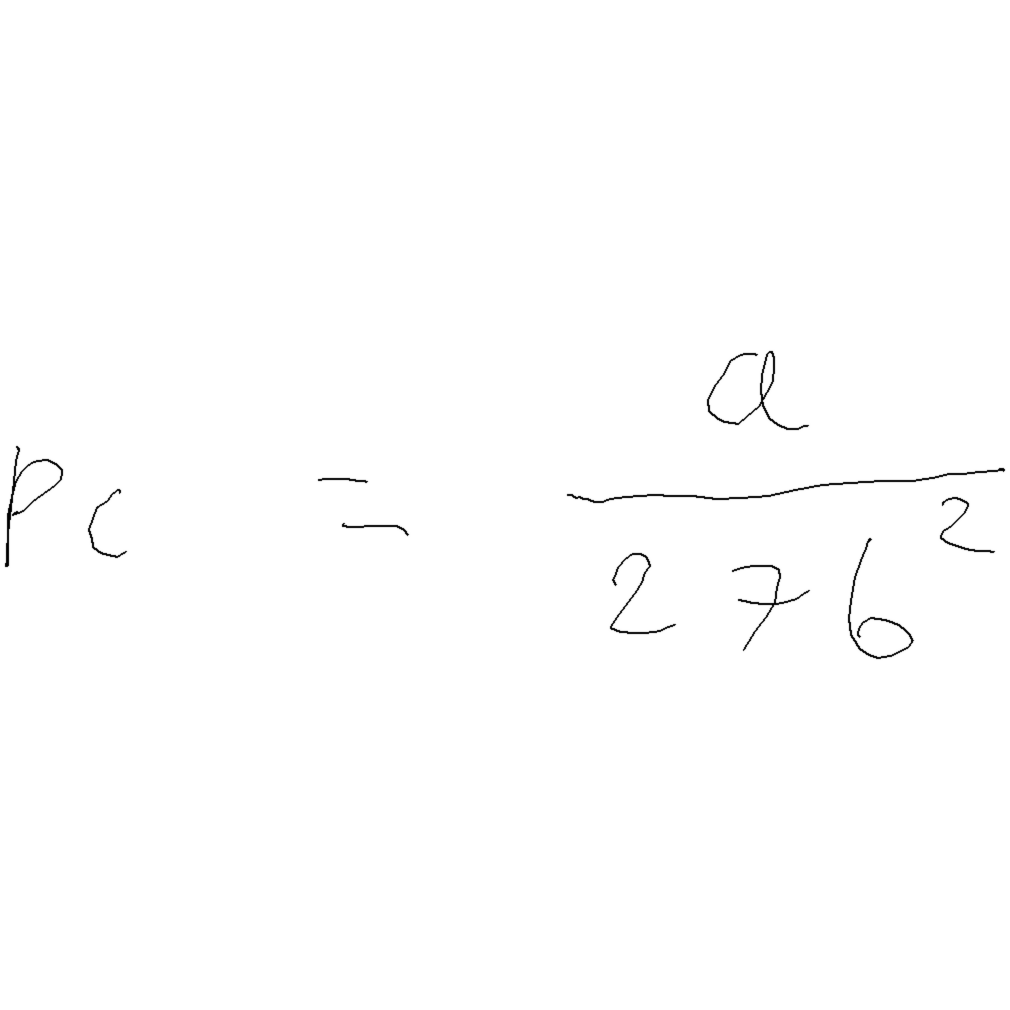 p_c = \frac{a}{27b^2}